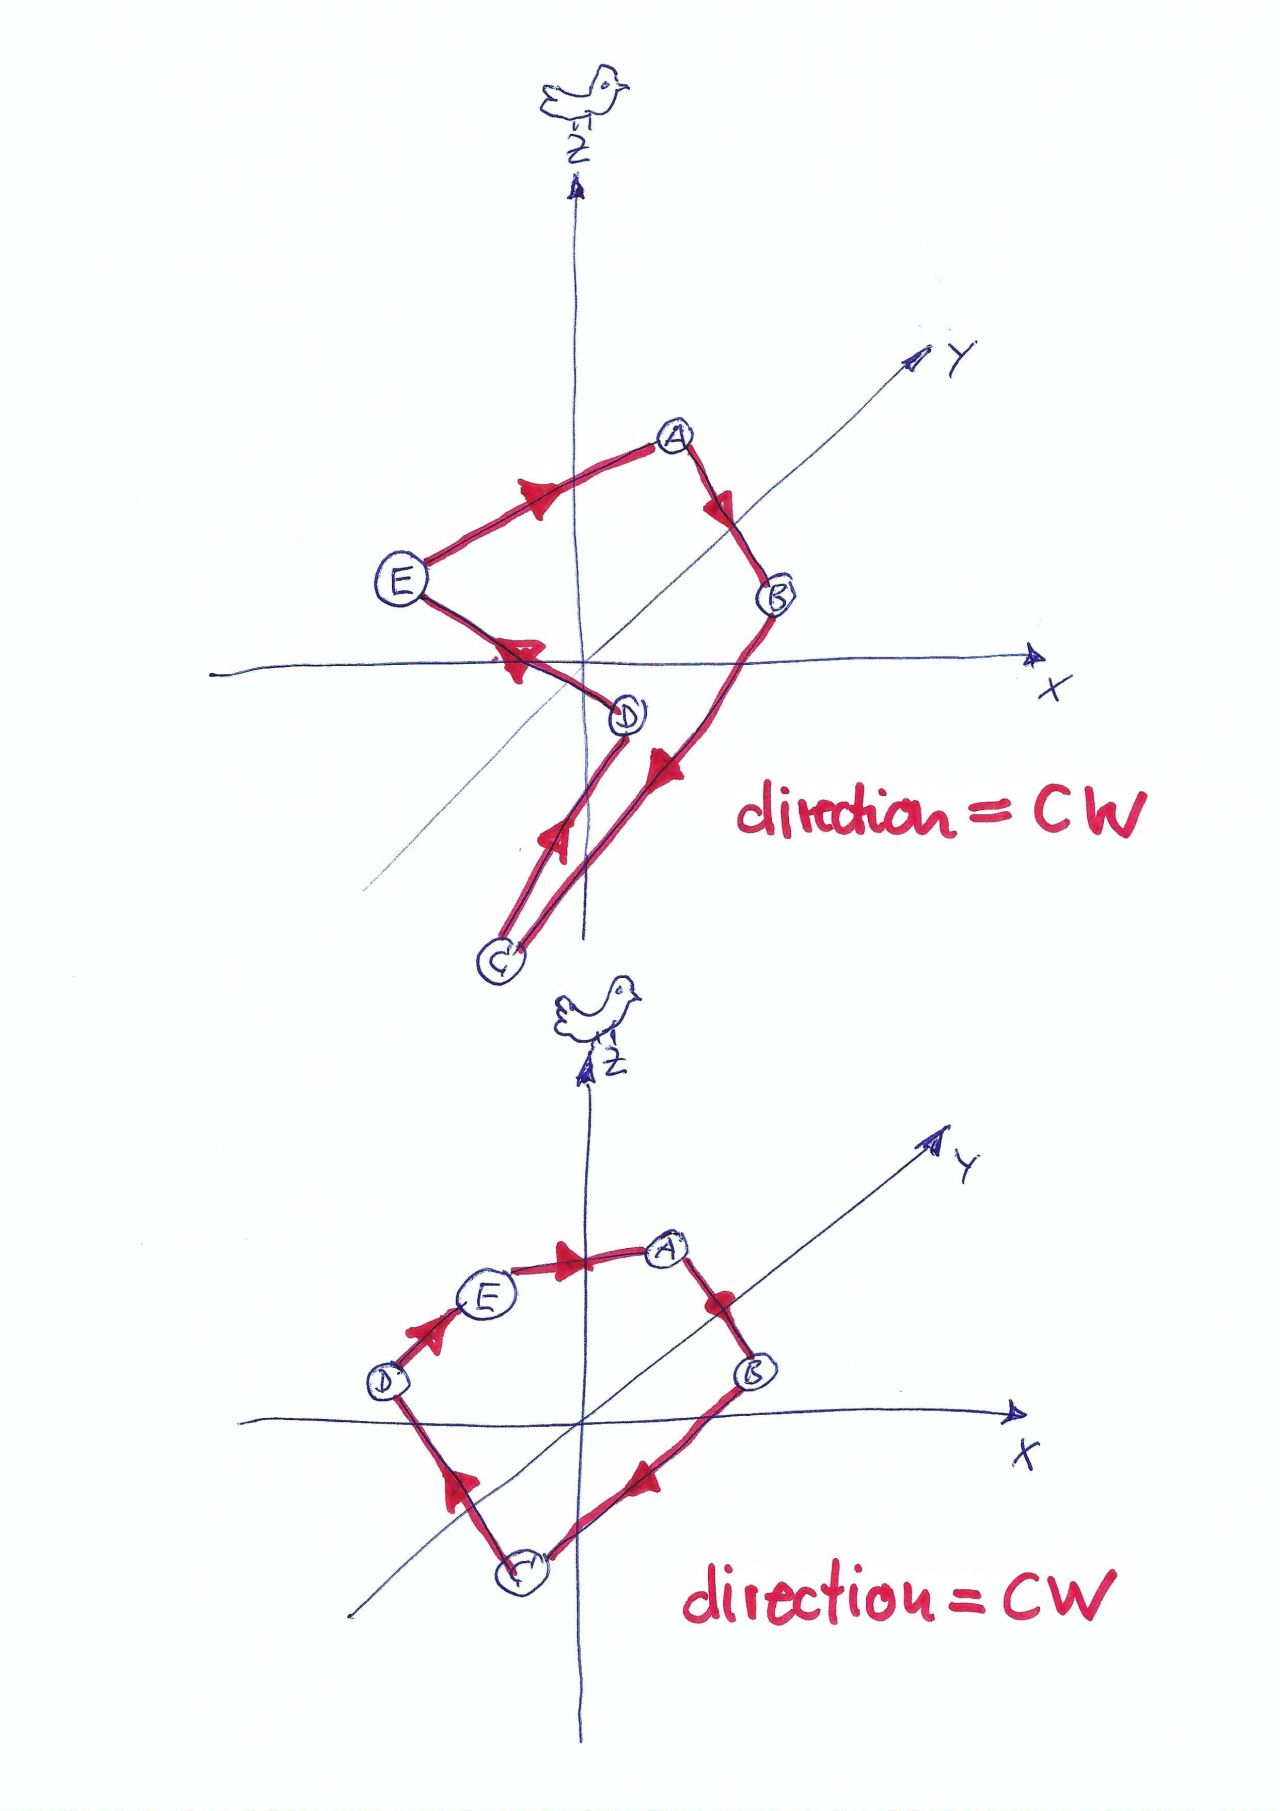 Z
Y
A
E
B
X
D
direction = CW
C
Z
Y
A
E
B
D
X
C
direction = CW